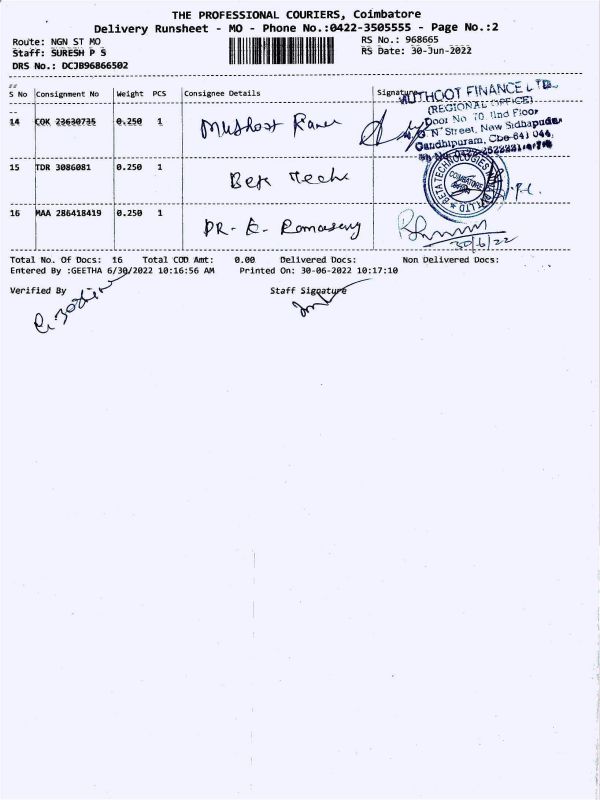 THE PROFESSIONAL COURIERS, Coimbatore
Delivery Runsheet - MO - Phone No.:0422-3505555 - Page No.:2
Route: NGN ST MO
RS No.: 968665
Staff: SURESH P S
RS Date: 30-Jun-2022
DRS No.: DCJB96866502
S No Consignment No Weight PCS Consignee Details Signature
MUTHOOT FINANCE LTD
(REGIONAL OFFICE)
Door No 70, IInd Floor
N Street, New Sidhapudur
Gandhipuram, Cbe-641 044
14 COK 23630735 0.250 1
15 TDR 3086081 0.250 1 Beta Tech
BETA TECHNOLOGIES
COIMBATORE
16 MAA 286418419 0.250 1 DR. E. Ramasamy
30/6/22
Total No. Of Docs: 16 Total COD Amt: 0.00 Delivered Docs: Non Delivered Docs:
Entered By :GEETHA 6/30/2022 10:16:56 AM Printed On: 30-06-2022 10:17:10
Verified By Staff Signature